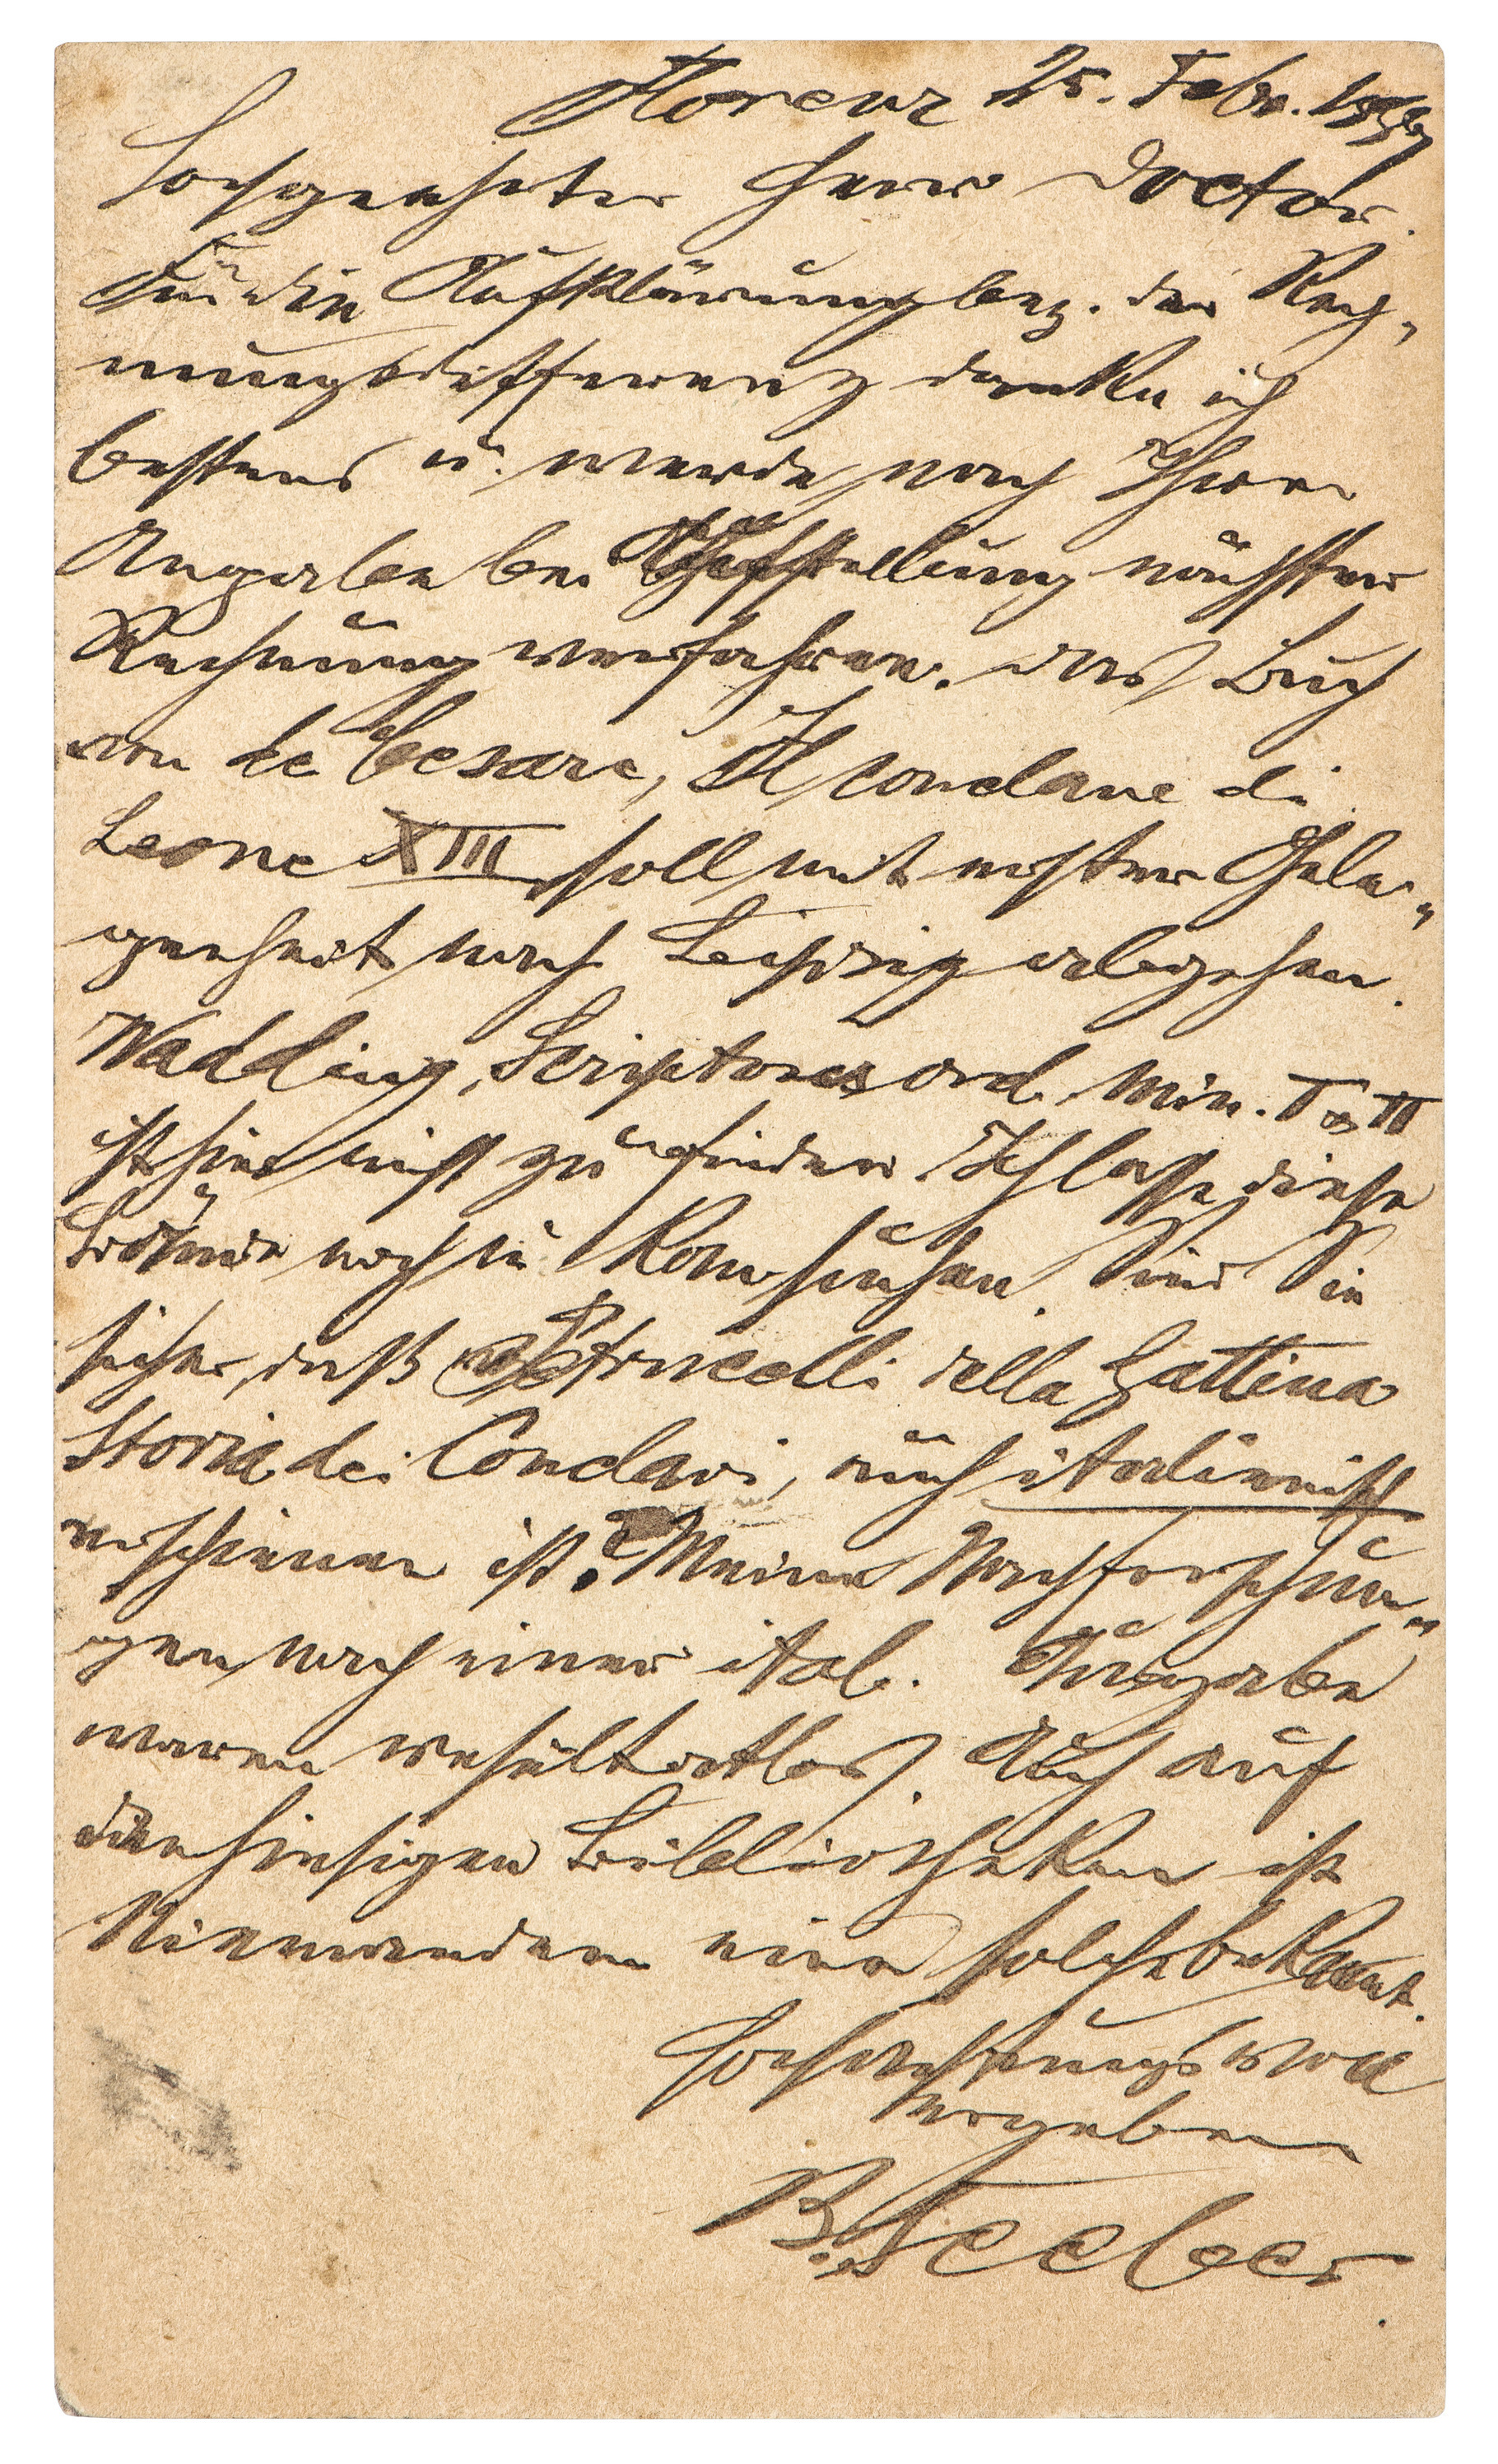 Florenz 25. Febr.
Hochgeehrter Herr Doctor.
Für die Aufklärung bez. der Rech-
nungsdifferenz danke ich
bestens u. werde nach Ihren
Angaben bei nächster
Rechnung verfahren. Das Buch
von de Cesare, Il conclave di
Leone XIII soll mit erster Gele-
genheit nach Leipzig abgehen.
Wadding, Scriptores ord. Min. T. II
ist hier nicht zu finden. Ich lasse diese
Bände noch in Rom suchen. Sind Sie
sicher, daß Petrucelli della Gattina
Storia dei Conclavi, auch italienisch
erschienen ist? Meine Nachforschun-
gen nach einer ital. Ausgabe
waren resultatlos. Auch auf
den hiesigen Bibliotheken ist
Niemandem eine solche bekannt.
Hochachtungsvoll
ergeben
B. Seeber